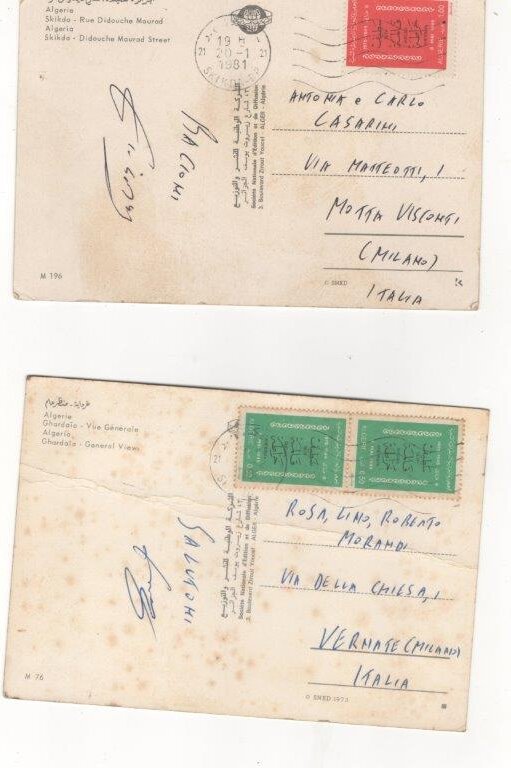 Algerie
Skikda - Rue Didouche Mourad
Algeria
Skikda - Didouche Mourad Street
19
20-1
1981
21
21
SKIKDA
BACIONI
الشركة الوطنية للنشر والتوزيع
Société Nationale d'Edition et de Diffusion
3, Boulevard Zirout Youcef - ALGER - Algérie
ANTONIA e CARLO
CASARINI
VIA MATTEOTTI, 1
MOTTA VISCONTI
(MILANO)
ITALIA
M 196
© SNED
غرداية - منظر عام
Algerie
Ghardaïa - Vue Générale
Algeria
Ghardaïa - General View
21
SALUTONI
الشركة الوطنية للنشر والتوزيع
Société Nationale d'Edition et de Diffusion
3, Boulevard Zirout Youcef - ALGER - Algérie
ROSA, LINO, ROBERTO
MORANDI
VIA DELLA CHIESA, 1
VERMATE (MILANO)
ITALIA
M 76
© SNED 1973